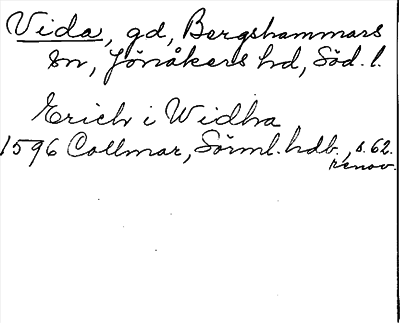 Vida, gd, Bergshammars
sn, Jönåkers hd, Söd. l.
Erich i Widha
1596 Collmar, Sörml. hdb., s. 62.
renov.